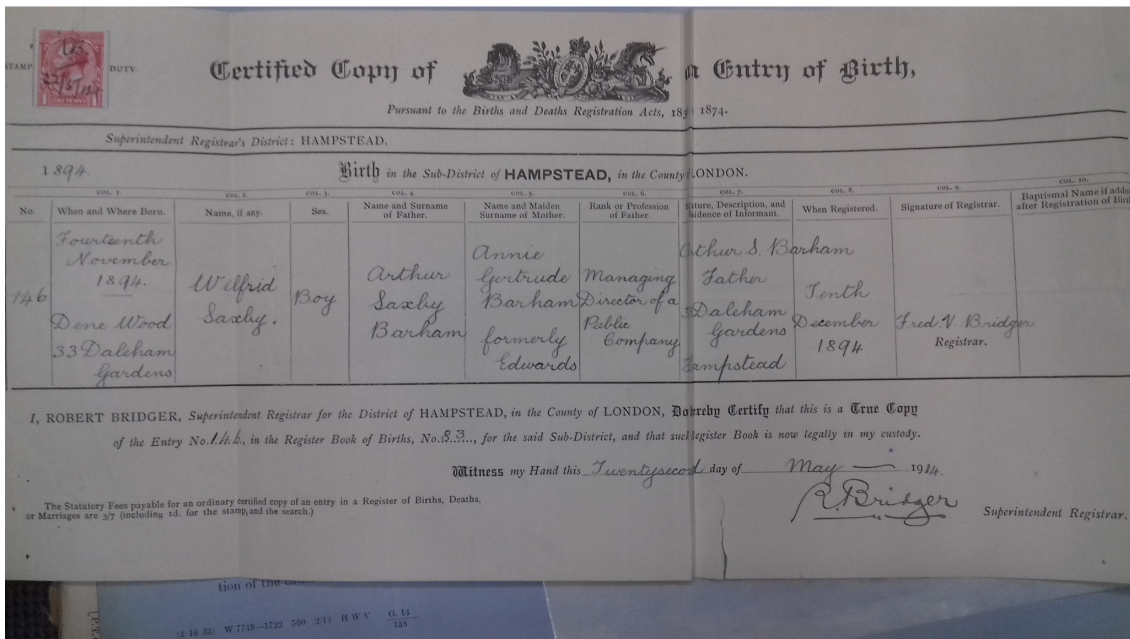 STAMP
DUTY.
ONE PENNY
Certified Copy of a Entry of Birth,
Pursuant to the Births and Deaths Registration Acts, 183 1874.
Superintendent Registrar's District: HAMPSTEAD.
1894. Birth in the Sub-District of HAMPSTEAD, in the County LONDON.
COL. 1. COL. 2. COL. 3. COL. 4. COL. 5. COL. 6. COL. 7. COL. 8. COL. 9. COL. 10.
No.
When and Where Born.
Name, if any.
Sex.
Name and Surname
of Father.
Name and Maiden
Surname of Mother.
Rank or Profession
of Father.
ature, Description, and
idence of Informant.
When Registered.
Signature of Registrar.
Baptismal Name if adde
after Registration of Birt
146
Fourteenth
November
1894.
Dene Wood
33 Daleham
Gardens
Wilfrid
Saxby.
Boy
Arthur
Saxby
Barham
Annie
Gertrude
Barham
formerly
Edwards
Managing
Director of a
Public
Company
Arthur S. Barham
Father
33 Daleham
Gardens
Hampstead
Tenth
December
1894
Fred. V. Bridger
Registrar.
I, ROBERT BRIDGER, Superintendent Registrar for the District of HAMPSTEAD, in the County of LONDON, Do reby Certify that this is a True Copy
of the Entry No. 146, in the Register Book of Births, No. 83, for the said Sub-District, and that such egister Book is now legally in my custody.
Witness my Hand this Twentysecod day of May 1914.
R. Bridger
Superintendent Registrar.
The Statutory Fees payable for an ordinary certified copy of an entry in a Register of Births, Deaths,
or Marriages are 3/7 (including 1d. for the stamp, and the search.)
tion of the
(4 16 33) W 7749—1722 500 2/11 H W V G. 14
138